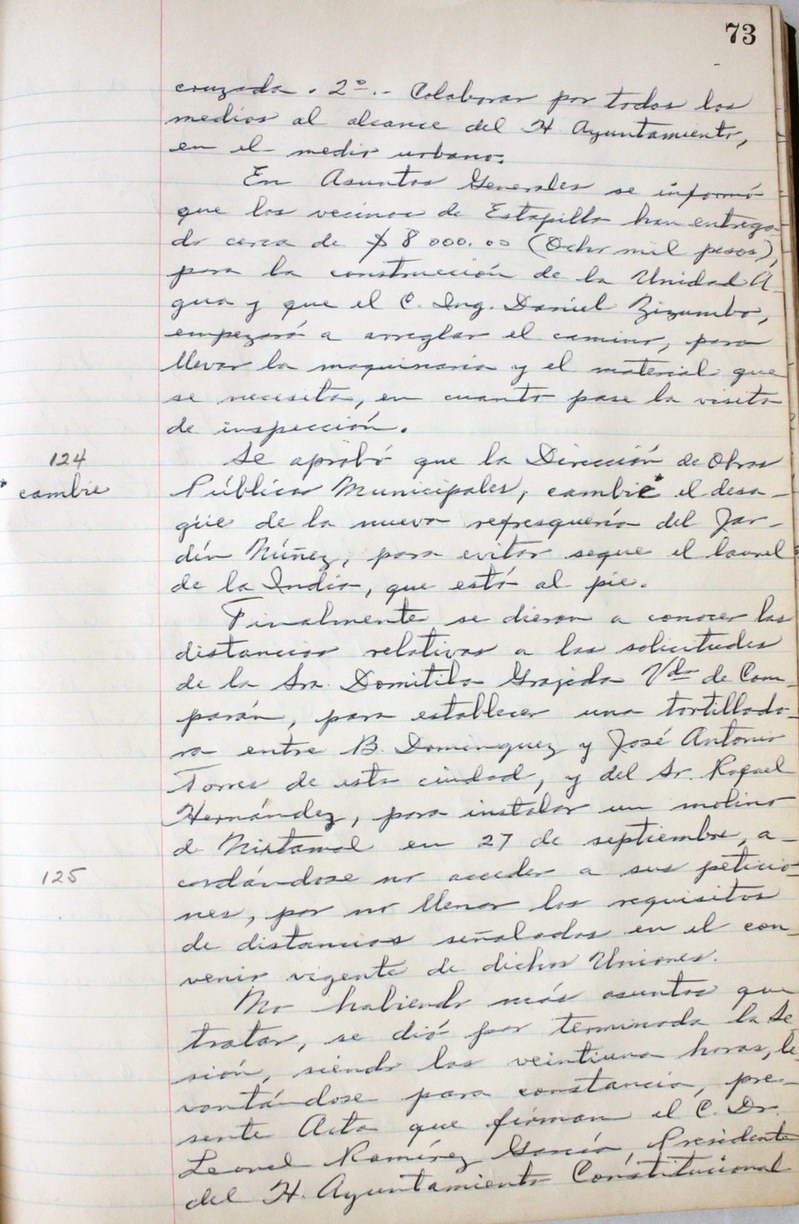 73
cruzada. 2º.- Colaborar por todos los
medios al alcance del H Ayuntamiento,
en el medio urbano.
En Asuntos Generales se informó
que los vecinos de Estapilla han entrega-
do cerca de $ 8 000.00 (Ocho mil pesos),
para la construcción de la Unidad A-
gua y que el C. Ing. Daniel Zizumbo,
empezará a arreglar el camino, para
llevar la maquinaria y el material que
se necesita, en cuanto pase la visita
de inspección.
124
Se aprobó que la Dirección de Obras
* cambie
Públicas Municipales, cambie* el desa-
güe de la nueva refresquería del Jar-
dín Núñez, para evitar seque el laurel
de la India, que está al pie.
Finalmente se dieron a conocer las
distancias relativas a las solicitudes
de la Sra. Domitila Grajeda Vda de Com-
parán, para establecer una tortillado-
ra entre B. Dominguez y José Antonio
Torres de esta ciudad, y del Sr. Rafael
Hernández, para instalar un molino
de Nixtamal en 27 de septiembre, a-
125
cordándose no acceder a sus peticio-
nes, por no llenar los requisitos
de distancias señalados en el con-
venio vigente de dichas Uniones.
No habiendo más asuntos que
tratar, se dió por terminada la Se-
sión, siendo las veintiuna horas, le-
vantándose para constancia, pre-
sente Acta que firman el C. Dr.
Leonel Ramírez García, Presidente
del H. Ayuntamiento Constitucional